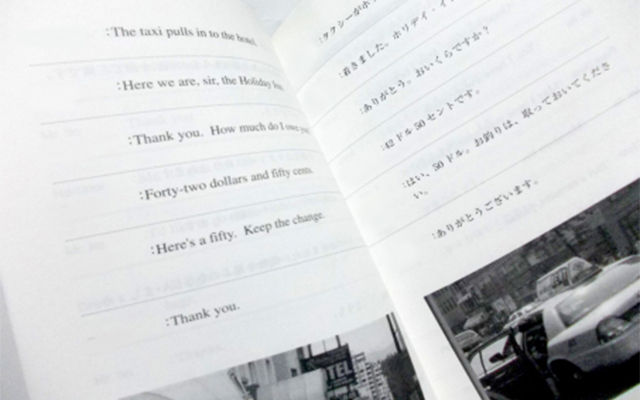 :The taxi pulls in to the hotel.
:Here we are, sir, the Holiday Inn.
:Thank you. How much do I owe you
:Forty-two dollars and fifty cents.
:Here's a fifty. Keep the change.
:Thank you.
:タクシーがホ
:着きました。ホリデイ・イ
:ありがとう。おいくらですか?
:42ドル50セントです。
:はい、50ドル。お釣りは、取っておいてくださ
い。
:ありがとうございます。
TEL